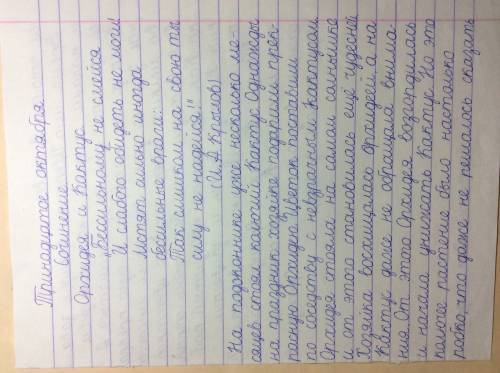 Тринадцатое октября
Сочинение
Орхидея и Кактус
"Бессильному не смейся
И слабого обидеть не моги!
Мстят сильно иногда
бессильные враги:
Так слишком на свою ты
силу не надейся"
(И. А. Крылов)
На подоконнике уже несколько ме-
сяцев стоял колкий Кактус. Однажды
на праздник хозяйке подарили прек-
расную Орхидею. Цветок поставили
по соседству с невзрачным Кактусом.
Орхидея стояла на самом солнышке
и от этого становилась ещё чудесней.
Хозяйка восхищалась Орхидеей, а на
Кактус даже не обращала внима-
ния. От этого Орхидея возгордилась
и начала унижать Кактус. Но это
колкое растение было настолько
робко, что даже не решалось сказать